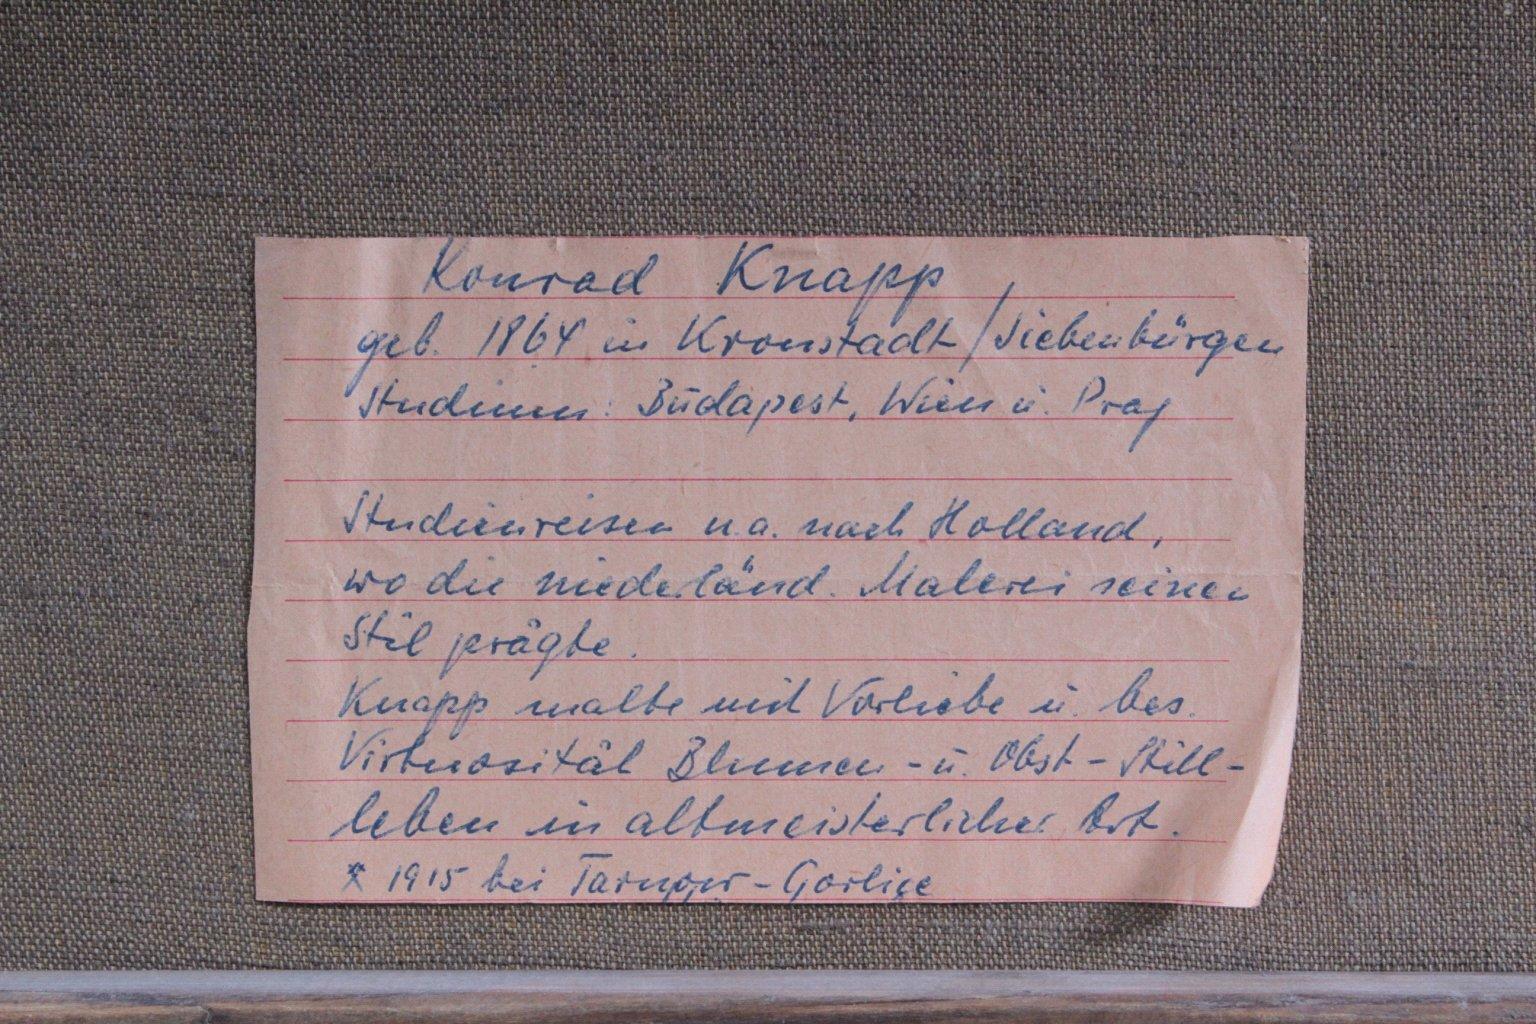 Konrad Knapp
geb. 1864 in Kronstadt/Siebenbürgen
Studium: Budapest, Wien u. Prag
Studienreisen u.a. nach Holland,
wo die niederländ. Malerei seinen
Stil prägte.
Knapp malte mit Vorliebe u. bes.
Virtuosität Blumen- u. Obst-Still-
leben in altmeisterlicher Art.
1915 bei Tarnopol-Gorlice